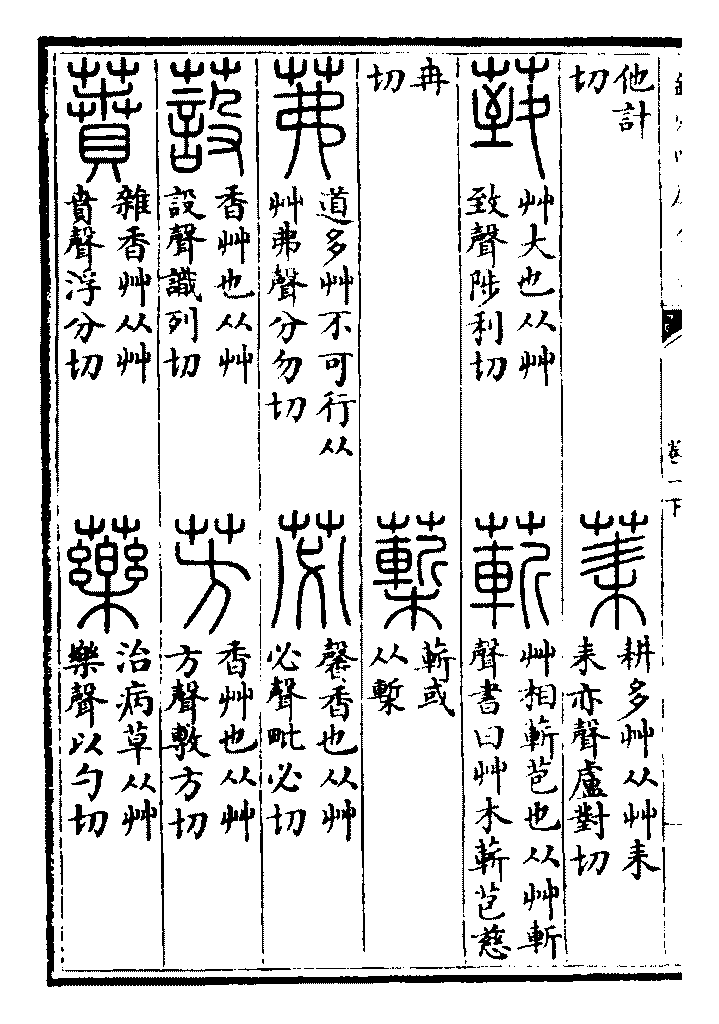 他計
切
䒹
耕多艸从艸耒
耒亦聲盧對切
艸大也从艸
致聲陟利切
蔪
艸相蔪苞也从艸斬
聲書曰艸木蔪苞慈
冉
切
蔪或
从槧
茀
道多艸不可行从
艸弗聲分勿切
苾
馨香也从艸
必聲毗必切
蔎
香艸也从艸
設聲識列切
芳
香艸也从艸
方聲敷方切
蕡
雜香艸从艸
賁聲浮分切
藥
治病草从艸
樂聲以勺切
卷一下